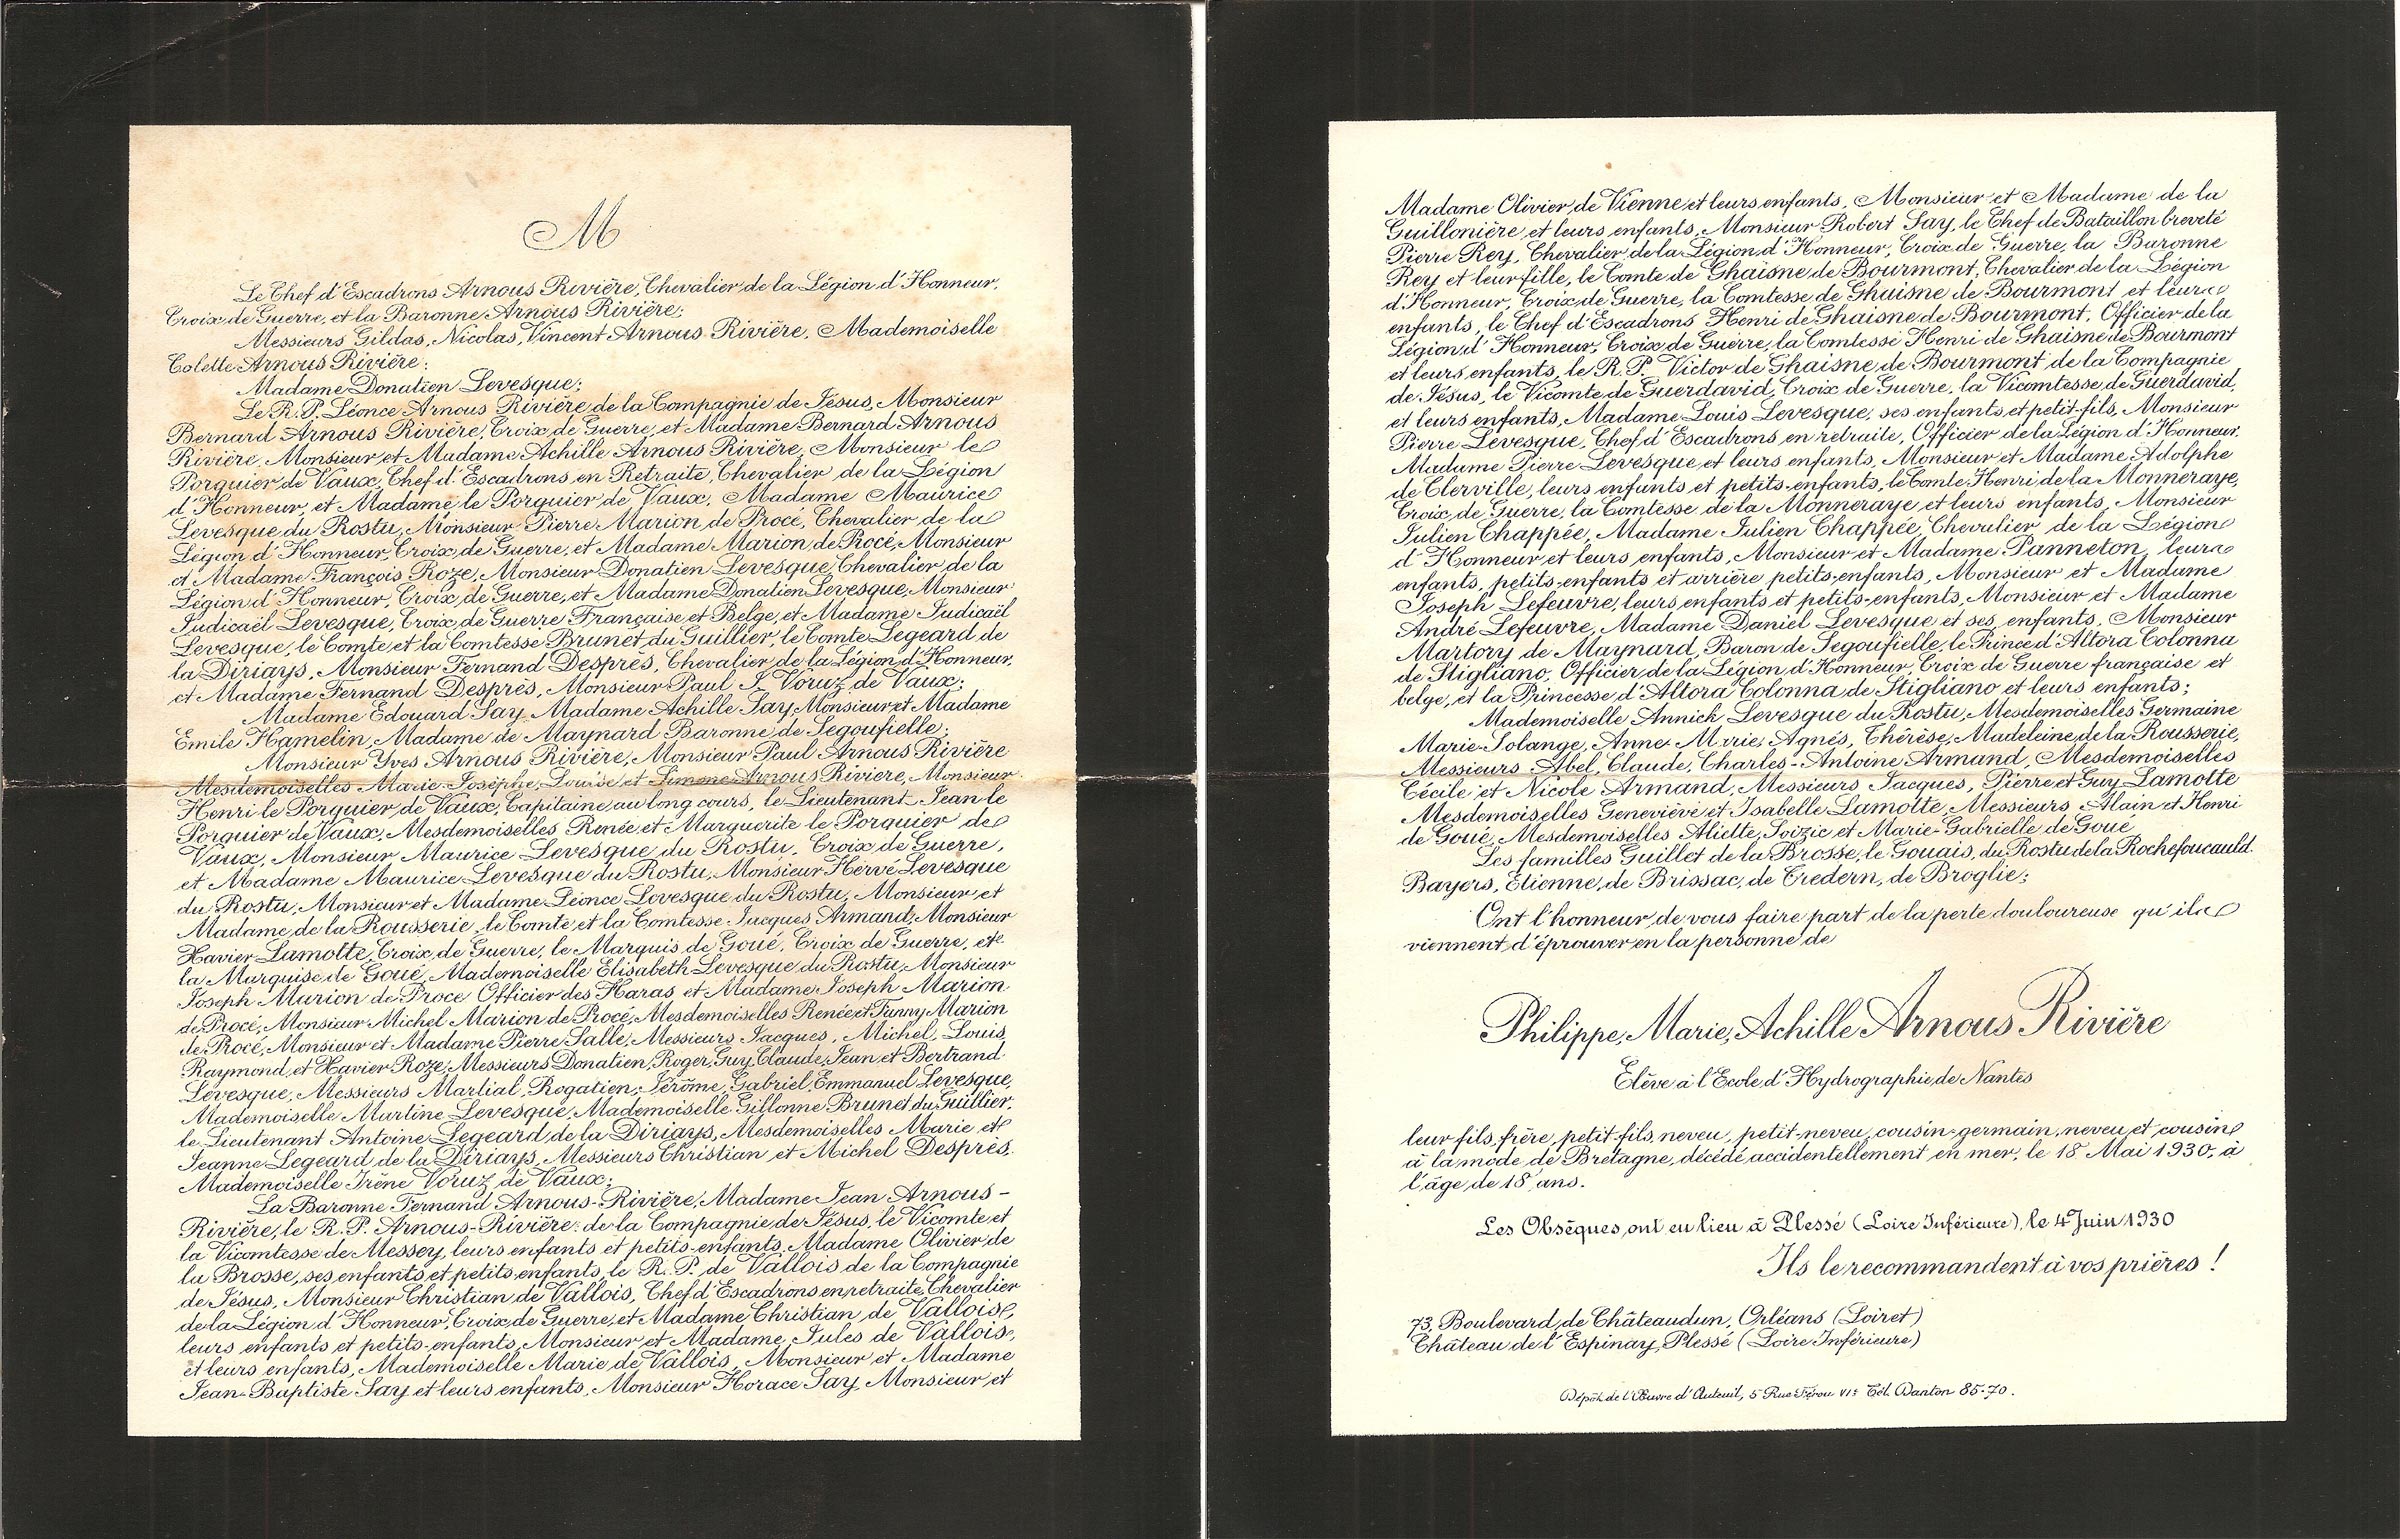 M
Le Chef d'Escadrons Arnous Rivière, Chevalier de la Légion d'Honneur,
Croix de Guerre, et la Baronne Arnous Rivière;
Messieurs Gildas, Nicolas, Vincent Arnous Rivière, Mademoiselle
Colette Arnous Rivière;
Madame Donatien Levesque;
Le R. P. Léonce Arnous Rivière de la Compagnie de Jésus, Monsieur
Bernard Arnous Rivière, Croix de Guerre, et Madame Bernard Arnous
Rivière, Monsieur et Madame Achille Arnous Rivière, Monsieur le
Porquier de Vaux, Chef d'Escadrons en Retraite, Chevalier de la Légion
d'Honneur, et Madame le Porquier de Vaux, Madame Maurice
Levesque du Rostu, Monsieur Pierre Marion de Procé, Chevalier de la
Légion d'Honneur, Croix de Guerre, et Madame Marion de Procé, Monsieur
et Madame François Roze, Monsieur Donatien Levesque, Chevalier de la
Légion d'Honneur, Croix de Guerre, et Madame Donatien Levesque, Monsieur
Judicaël Levesque, Croix de Guerre Française et Belge, et Madame Judicaël
Levesque, le Comte et la Comtesse Brunet du Guillier, le Comte Legeard de
la Diriays, Monsieur Fernand Desprès, Chevalier de la Légion d'Honneur,
et Madame Fernand Desprès, Monsieur Paul J. Voruz de Vaux;
Madame Edouard Say, Madame Achille Say, Monsieur et Madame
Emile Hamelin, Madame de Maynard Baronne de Segoufielle;
Monsieur Yves Arnous Rivière, Monsieur Paul Arnous Rivière
Mesdemoiselles Marie-Josèphe, Louise et Simone Arnous Rivière, Monsieur
Henri le Porquier de Vaux, Capitaine au long cours, le Lieutenant Jean le
Porquier de Vaux, Mesdemoiselles Renée et Marguerite le Porquier de
Vaux, Monsieur Maurice Levesque du Rostu, Croix de Guerre,
et Madame Maurice Levesque du Rostu, Monsieur Hervé Levesque
du Rostu, Monsieur et Madame Léonce Levesque du Rostu, Monsieur et
Madame de la Rousserie, le Comte et la Comtesse Jacques Armand, Monsieur
Xavier Lamotte, Croix de Guerre, le Marquis de Goué, Croix de Guerre, et
la Marquise de Goué, Mademoiselle Elisabeth Levesque du Rostu, Monsieur
Joseph Marion de Procé Officier des Haras et Madame Joseph Marion
de Procé, Monsieur Michel Marion de Procé, Mesdemoiselles Renée et Fanny Marion
de Procé, Monsieur et Madame Pierre Salle, Messieurs Jacques, Michel, Louis,
Raymond et Xavier Roze, Messieurs Donatien, Roger, Guy, Claude, Jean et Bertrand
Levesque, Messieurs Martial, Rogatien, Jérôme, Gabriel, Emmanuel Levesque,
Mademoiselle Martine Levesque, Mademoiselle Gillonne Brunet du Guillier,
le Lieutenant Antoine Legeard de la Diriays, Mesdemoiselles Marie et
Jeanne Legeard de la Diriays, Messieurs Christian et Michel Desprès,
Mademoiselle Irène Voruz de Vaux;
La Baronne Fernand Arnous-Rivière, Madame Jean Arnous-
Rivière, le R. P. Arnous-Rivière de la Compagnie de Jésus, le Vicomte et
la Vicomtesse de Messey, leurs enfants et petits-enfants, Madame Olivier de
la Brosse, ses enfants et petits-enfants, le R. P. de Vallois de la Compagnie
de Jésus, Monsieur Christian de Vallois, Chef d'Escadrons en retraite, Chevalier
de la Légion d'Honneur, Croix de Guerre, et Madame Christian de Vallois,
leurs enfants et petits-enfants, Monsieur et Madame Jules de Vallois,
et leurs enfants, Mademoiselle Marie de Vallois, Monsieur et Madame
Jean-Baptiste Say et leurs enfants, Monsieur Horace Say, Monsieur et
Madame Olivier de Vienne et leurs enfants, Monsieur et Madame de la
Guillonière et leurs enfants, Monsieur Robert Say, le Chef de Bataillon breveté
Pierre Rey, Chevalier de la Légion d'Honneur, Croix de Guerre, la Baronne
Rey et leur fille, le Comte de Ghaisne de Bourmont, Chevalier de la Légion
d'Honneur, Croix de Guerre, la Comtesse de Ghaisne de Bourmont et leurs
enfants, le Chef d'Escadrons Henri de Ghaisne de Bourmont, Officier de la
Légion d'Honneur, Croix de Guerre, la Comtesse Henri de Ghaisne de Bourmont
et leurs enfants, le R. P. Victor de Ghaisne de Bourmont de la Compagnie
de Jésus, le Vicomte de Guerdavid, Croix de Guerre, la Vicomtesse de Guerdavid,
et leurs enfants, Madame Louis Levesque, ses enfants et petit-fils, Monsieur
Pierre Levesque, Chef d'Escadrons en retraite, Officier de la Légion d'Honneur,
Madame Pierre Levesque et leurs enfants, Monsieur et Madame Adolphe
de Clerville, leurs enfants et petits-enfants, le Comte Henri de la Monneraye,
Croix de Guerre, la Comtesse de la Monneraye et leurs enfants, Monsieur
Julien Chappée, Madame Julien Chappée, Chevalier de la Légion
d'Honneur et leurs enfants, Monsieur et Madame Panneton, leurs
enfants, petits-enfants et arrière petits-enfants, Monsieur et Madame
Joseph Lefeuvre, leurs enfants et petits-enfants, Monsieur et Madame
André Lefeuvre, Madame Daniel Levesque et ses enfants, Monsieur
Martory de Maynard, Baron de Segoufielle, le Prince d'Altora Colonna
de Stigliano, Officier de la Légion d'Honneur, Croix de Guerre française et
belge, et la Princesse d'Altora Colonna de Stigliano et leurs enfants;
Mademoiselle Annick Levesque du Rostu, Mesdemoiselles Germaine
Marie-Solange, Anne-Marie, Agnés, Thérèse, Madeleine de la Rousserie,
Messieurs Abel, Claude, Charles-Antoine Armand, Mesdemoiselles
Cécile et Nicole Armand, Messieurs Jacques, Pierre et Guy Lamotte
Mesdemoiselles Geneviève et Isabelle Lamotte, Messieurs Alain et Henri
de Goué, Mesdemoiselles Aliette, Soizic et Marie-Gabrielle de Goué
Les familles Guillet de la Brosse, le Gouais, du Rostu de la Rochefoucauld
Bayers, Etienne, de Brissac, de Tredern, de Broglie;
Ont l'honneur de vous faire part de la perte douloureuse qu'ils
viennent d'éprouver en la personne de
Philippe, Marie, Achille Arnous Rivière
Elève à l'Ecole d'Hydrographie de Nantes
leur fils, frère, petit-fils, neveu, petit-neveu, cousin-germain, neveu et cousin
à la mode de Bretagne, décédé accidentellement en mer, le 18 Mai 1930, à
l'âge de 18 ans.
Les Obsèques ont eu lieu à Plessé (Loire Inférieure), le 4 Juin 1930
Ils le recommandent à vos prières !
73, Boulevard de Châteaudun, Orléans (Loiret)
Château de l'Espinay, Plessé (Loire Inférieure)
Dépôt de l'Œuvre d'Auteuil, 5 Rue Férou VIe Tél. Danton 85-70.